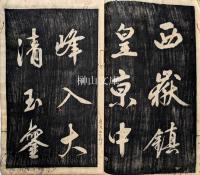 西嶽鎮
皇京中
峰入大
清玉鑾
榊山文庫